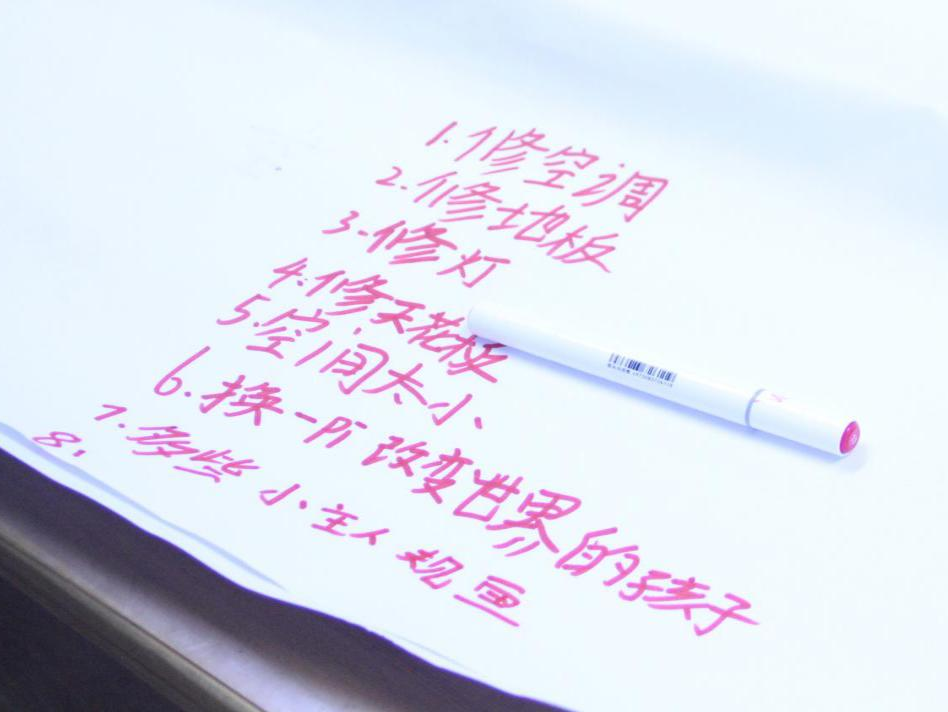 1.修空调
2.修地板
3.修灯
4.修天花板
5.空间大小
6.换一pi改变世界的孩子
7.多些小主人规画
8.